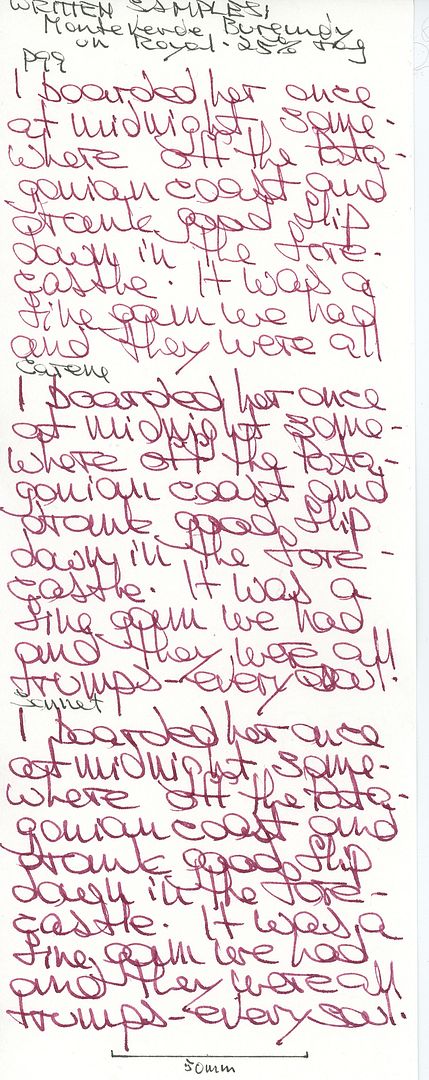 WRITTEN SAMPLES:
Monteverde Burgundy
on Royal - 25% rag
P99
I boarded her once
at midnight some-
where off the Pata-
gonian coast and
drank good flip
down in the fore-
castle. It was a
fine gam we had
and they were all
Carene
I boarded her once
at midnight some-
where off the Pata-
gonian coast and
drank good flip
down in the fore-
castle. It was a
fine gam we had
and they were all
trumps-every soul.
Sonnet
I boarded her once
at midnight some-
where off the Pata-
gonian coast and
drank good flip
down in the fore-
castle. It was a
fine gam we had
and they were all
trumps-every soul.
50mm